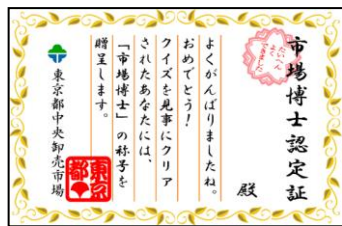 市場博士認定証
たいへんよくできました
殿
よくがんばりましたね。
おめでとう！
クイズを見事にクリア
されたあなたには、
「市場博士」の称号を
贈呈します。
東京都中央卸売市場
東京都